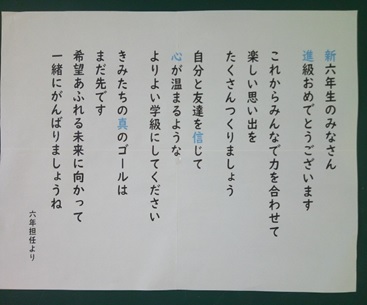 新六年生のみなさん
進級おめでとうございます
これからみんなで力を合わせて
楽しい思い出を
たくさんつくりましょう
自分と友達を信じて
心が温まるような
よりよい学級にしてください
きみたちの真のゴールは
まだ先です
希望あふれる未来に向かって
一緒にがんばりましょうね
六年担任より